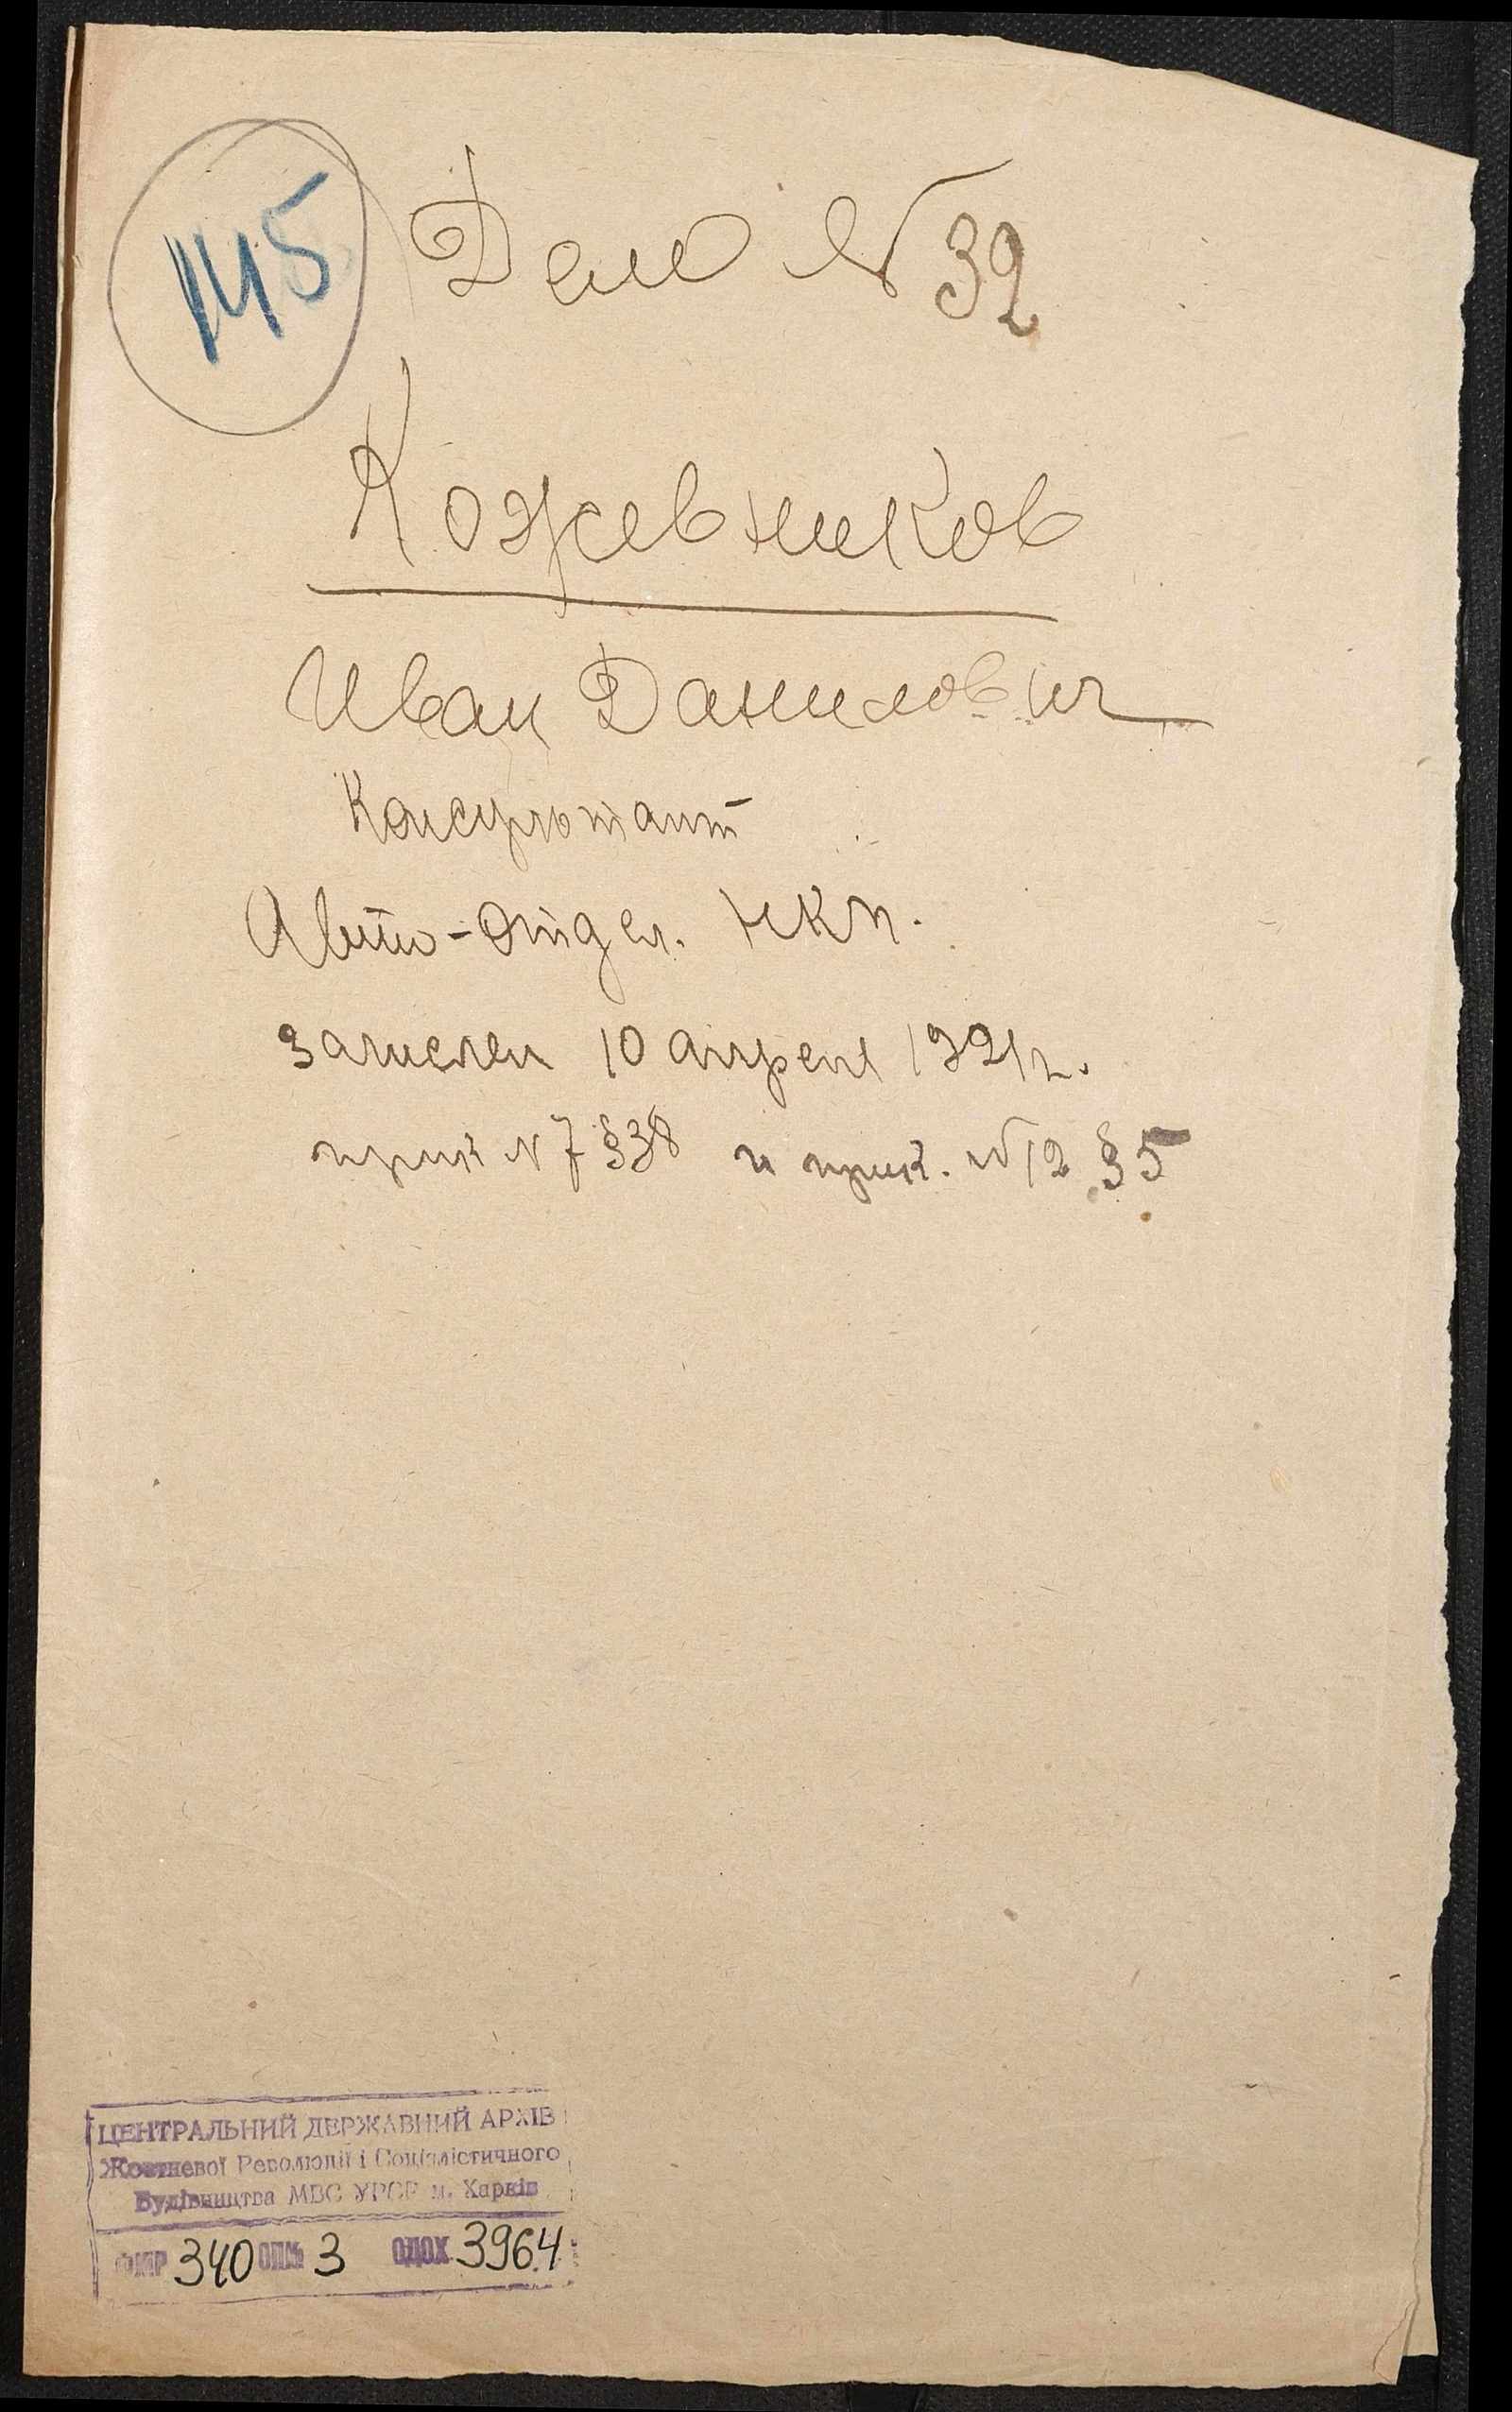 145
Дело № 32
Кожевников
Иван Данилович
Консультант
Авто-отдел. НКП.
зачислен 10 апреля 1921 г.
прик № 7 § 38 и прик. № 12 § 5
ЦЕНТРАЛЬНИЙ ДЕРЖАВНИЙ АРХІВ
Жовтневої Революції і Соціалістичного
Будівництва МВС УРСР м. Харків
Ф№Р 340 ОП№ 3 ОД.ЗХ. 3964